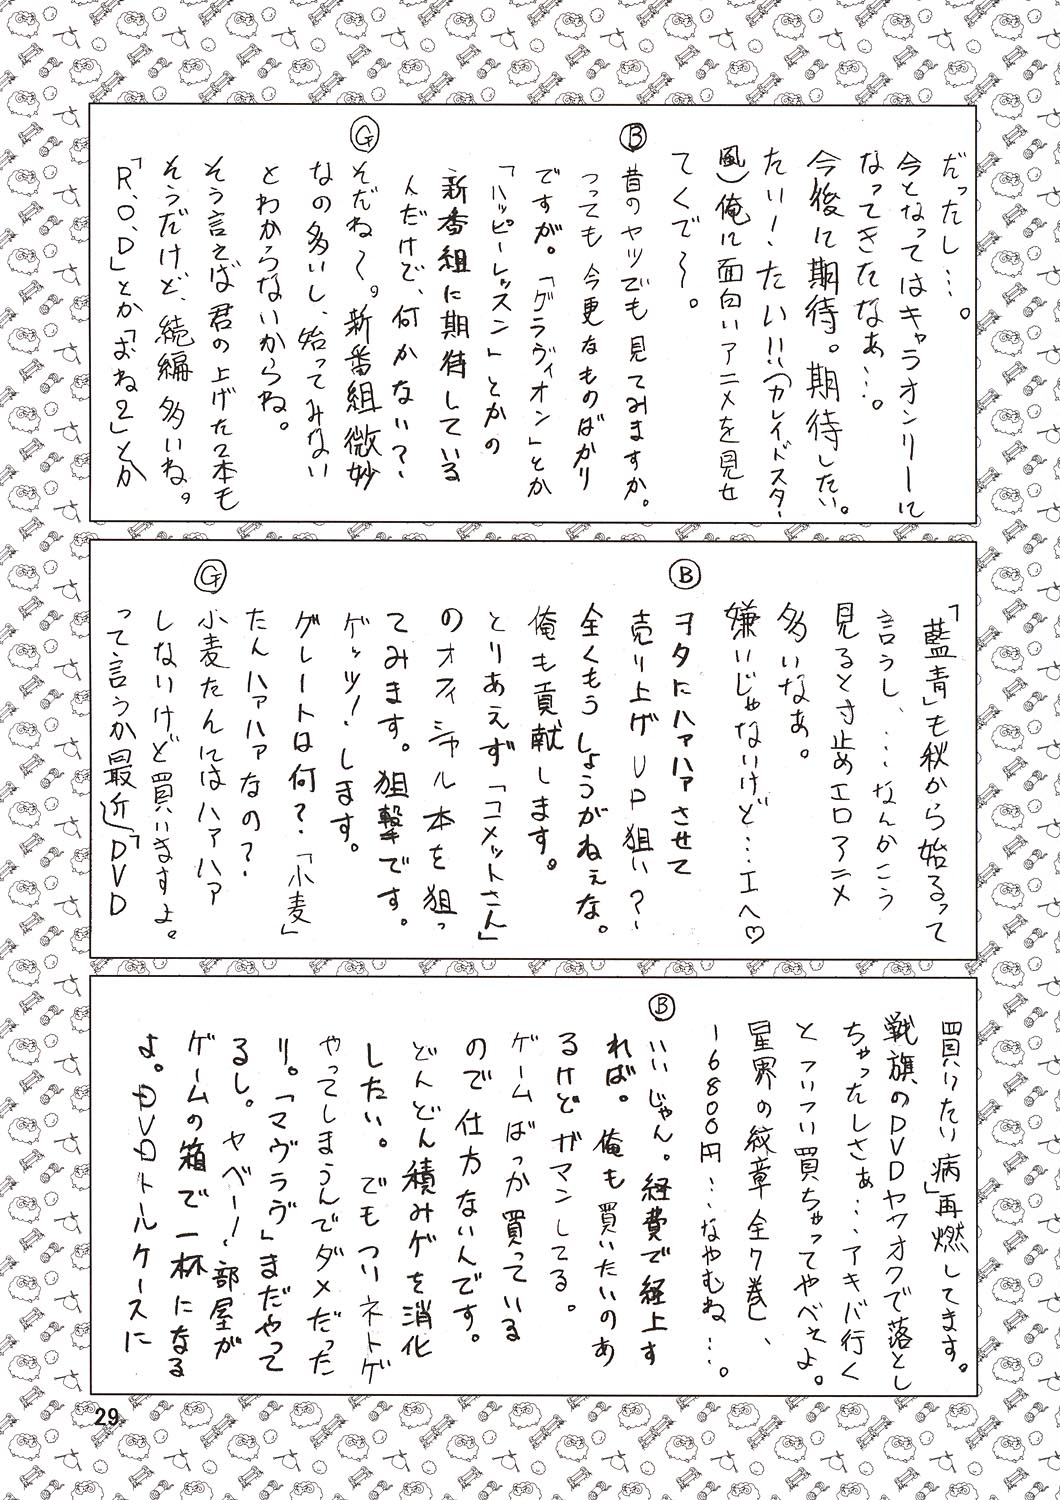 だったし…。
今となってはキャラオンリーに
なってきたなぁ…。
今後に期待。期待したい。
たい！たい!!(カレイドスター
風)俺に面白いアニメを見せ
てくで〜。
Ⓑ
昔のヤツでも見てみますか。
つっても今更なものばかり
ですが。「グラヴィオン」とか
「ハッピーレッスン」とかの
新番組に期待している
んだけで、何かない？
Ⓖ
そだね〜。新番組微妙
なの多いし、始ってみない
とわからないからね。
そう言えば君の上げた2本も
そうだけど、続編多いね。
「R.O.D」とか「おね2」とか
「藍青」も秋から始るって
言うし、…なんかこう
見ると寸止めエロアニメ
多いなぁ。
嫌いじゃないけど…エヘ♡
Ⓑ
ヲタにハァハァさせて
売り上げUP狙い？
全くもうしょうがねぇな。
俺も貢献します。
とりあえず「コメットさん」
のオフィシャル本を狙っ
てみます。狙撃です。
ゲッツ！します。
グレートは何？「小麦」
たんハァハァなの？
Ⓖ
小麦たんにはハァハァ
しないけど買いますよ。
って言うか最近「DVD
買いたい病」再燃してます。
戦旗のDVDヤフオクで落とし
ちゃったしさぁ…アキバ行く
とついつい買ちゃってやべぇよ。
星界の紋章全7巻し、
16800円…なやむね…。
Ⓑ
いいじゃん。経費で経上す
れば。俺も買いたいのあ
るけどガマンしてる。
ゲームばっか買っている
ので仕方ないんです。
どんどん積みゲを消化
したい。でもついネトゲ
やってしまうんでダメだった
り。「マヴラヴ」まだやって
るし。ヤベー！部屋が
ゲームの箱で一杯になる
よ。DVDトルケースに
29